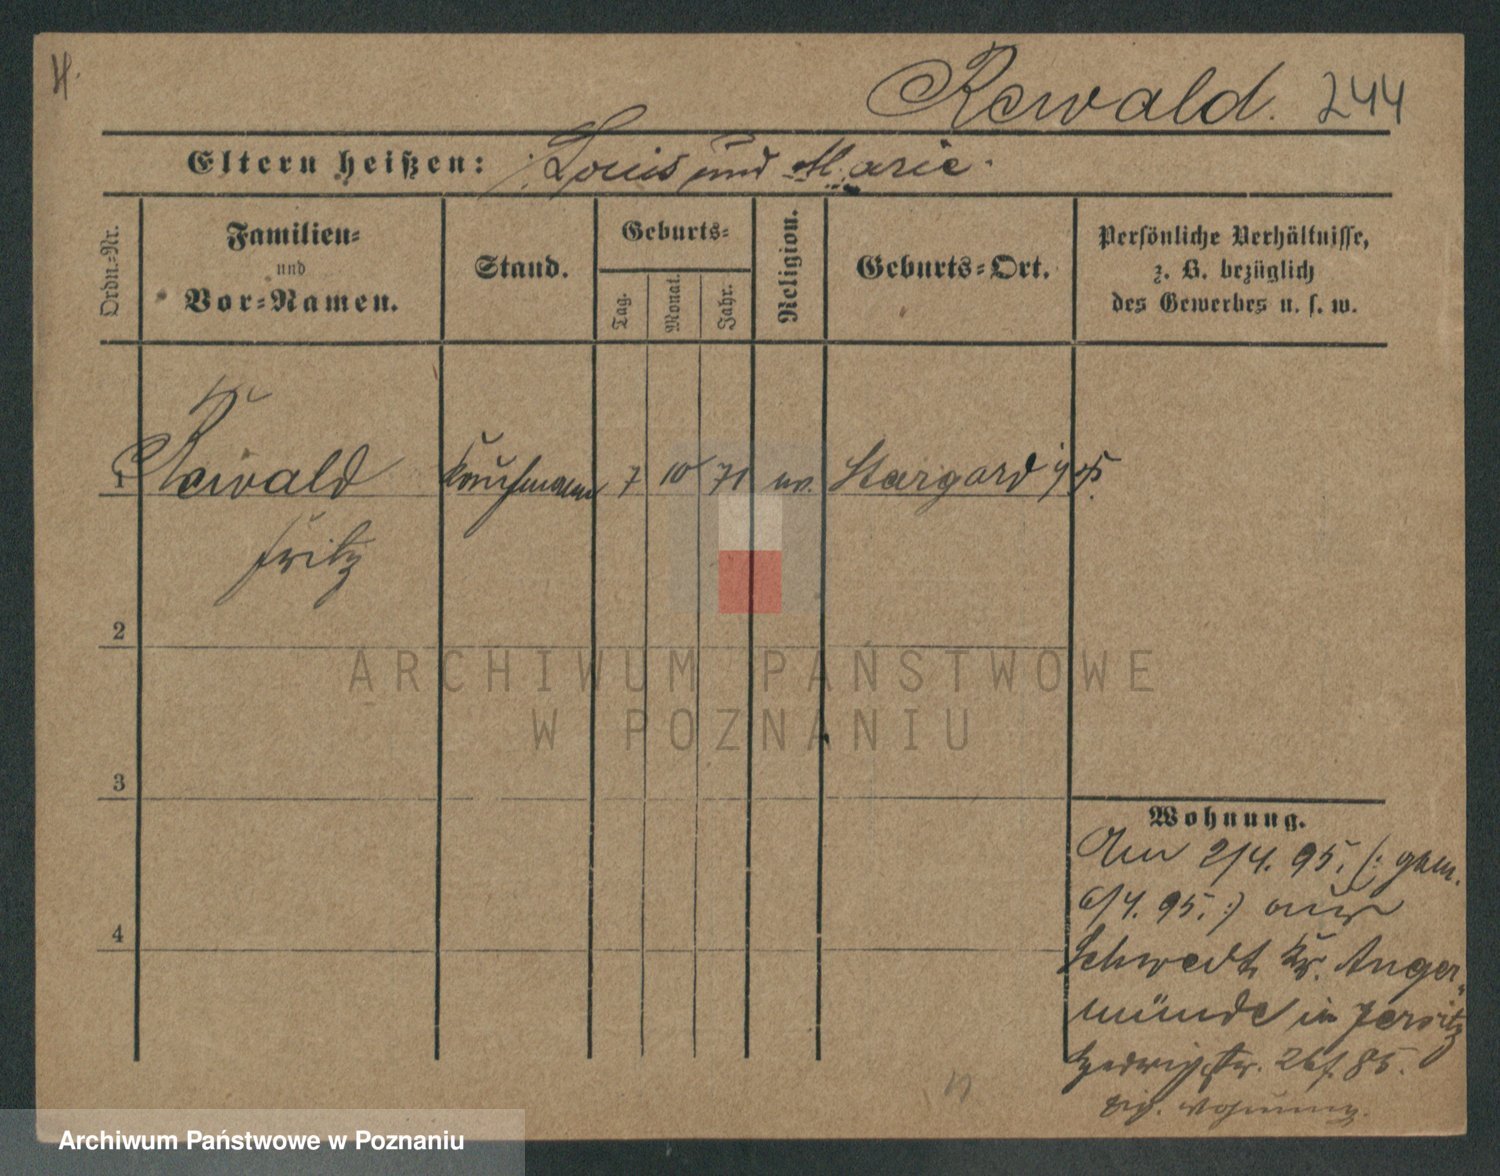 Rewald. 244
Eltern heißen: Louis und Marie.
Ordn.-Nr.
Familien-
und
Vor-Namen.
Stand.
Geburts-
Tag.
Monat.
Jahr.
Religion.
Geburts-Ort.
Persönliche Verhältnisse,
z. B. bezüglich
des Gewerbes u. s. w.
1 Rewald Kaufmann 7 10 71 ev. Stargard
Fritz
2
3
4
ARCHIWUM PAŃSTWOWE
W POZNANIU
Wohnung.
Am 2/4. 95. (: gem.
6/4. 95. :) aus
Schwedt, Kr. Anger-
münde in Jersitz
Hedwigstr.
Wohnung.
Archiwum Państwowe w Poznaniu